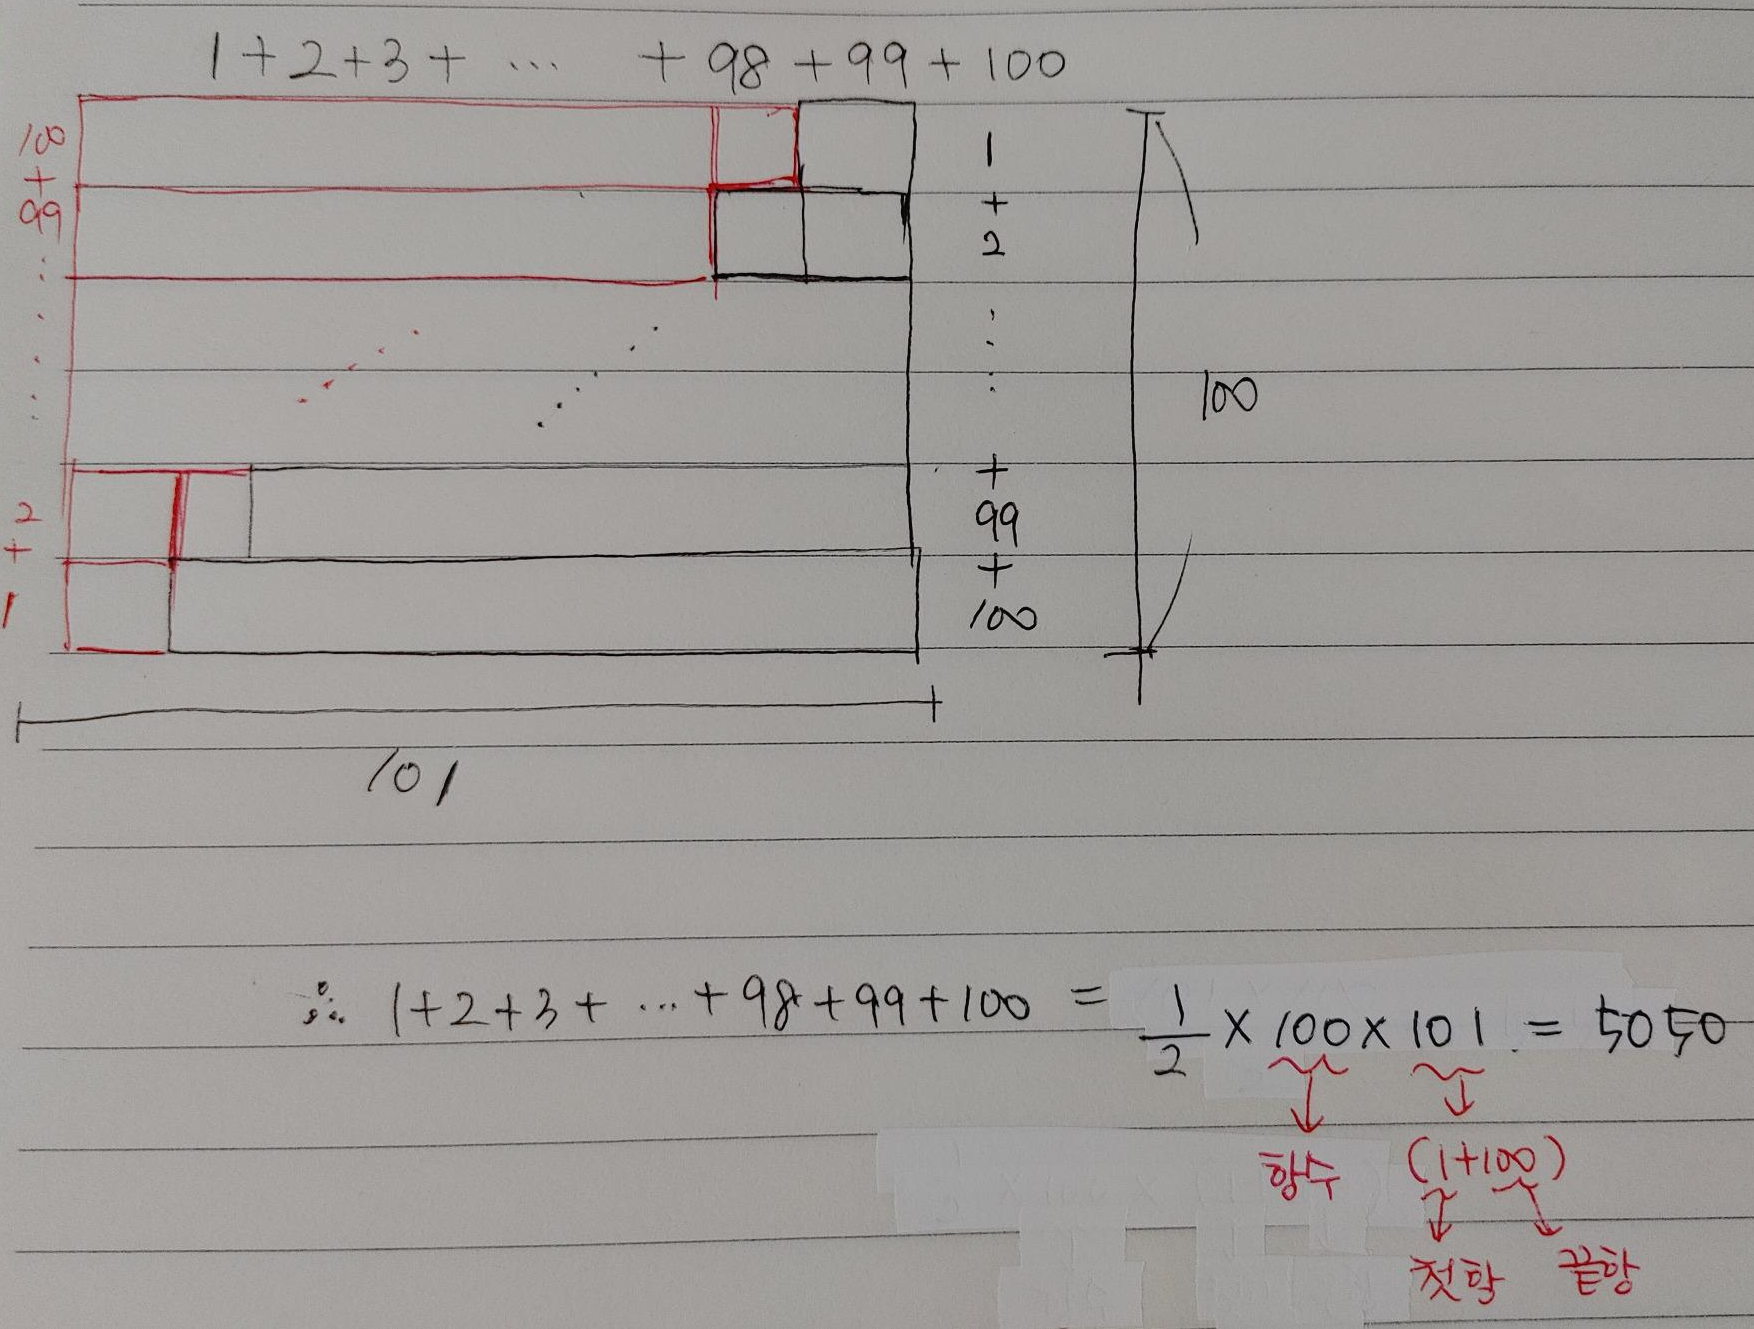 1+2+3+ ... +98+99+100
100
+
99
:
.
.
:
2
+
1
1
+
2
:
:
+
99
+
100
100
101
∴ 1+2+3+ ... +98+99+100 = 1/2 × 100 × 101 = 5050
항수 (1+100)
첫항 끝항